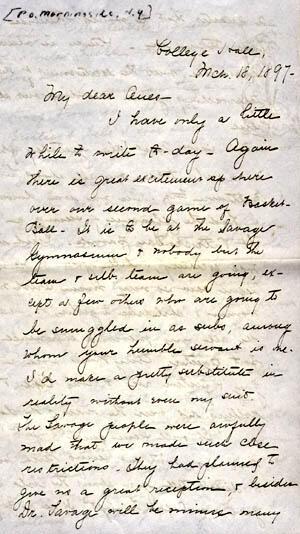 [P.O. Morningside, N.Y]
College Hall,
Mch. 18, 1897-
My dear Ones-
I have only a little
while to write to-day- Again
there is great excitement up here
over our second game of Basket-
Ball- It is to be at the Savage
Gymnasium & nobody but the
team & sub. team are going, ex-
cept a few others who are going to
be smuggled in as subs, among
whom your humble servant is one.
I'd make a pretty substitute in
reality without even my suit
The Savage people were awfully
mad that we made such close
restrictions- They had planned to
give us a great reception, & besides
Dr. Savage will be minus many